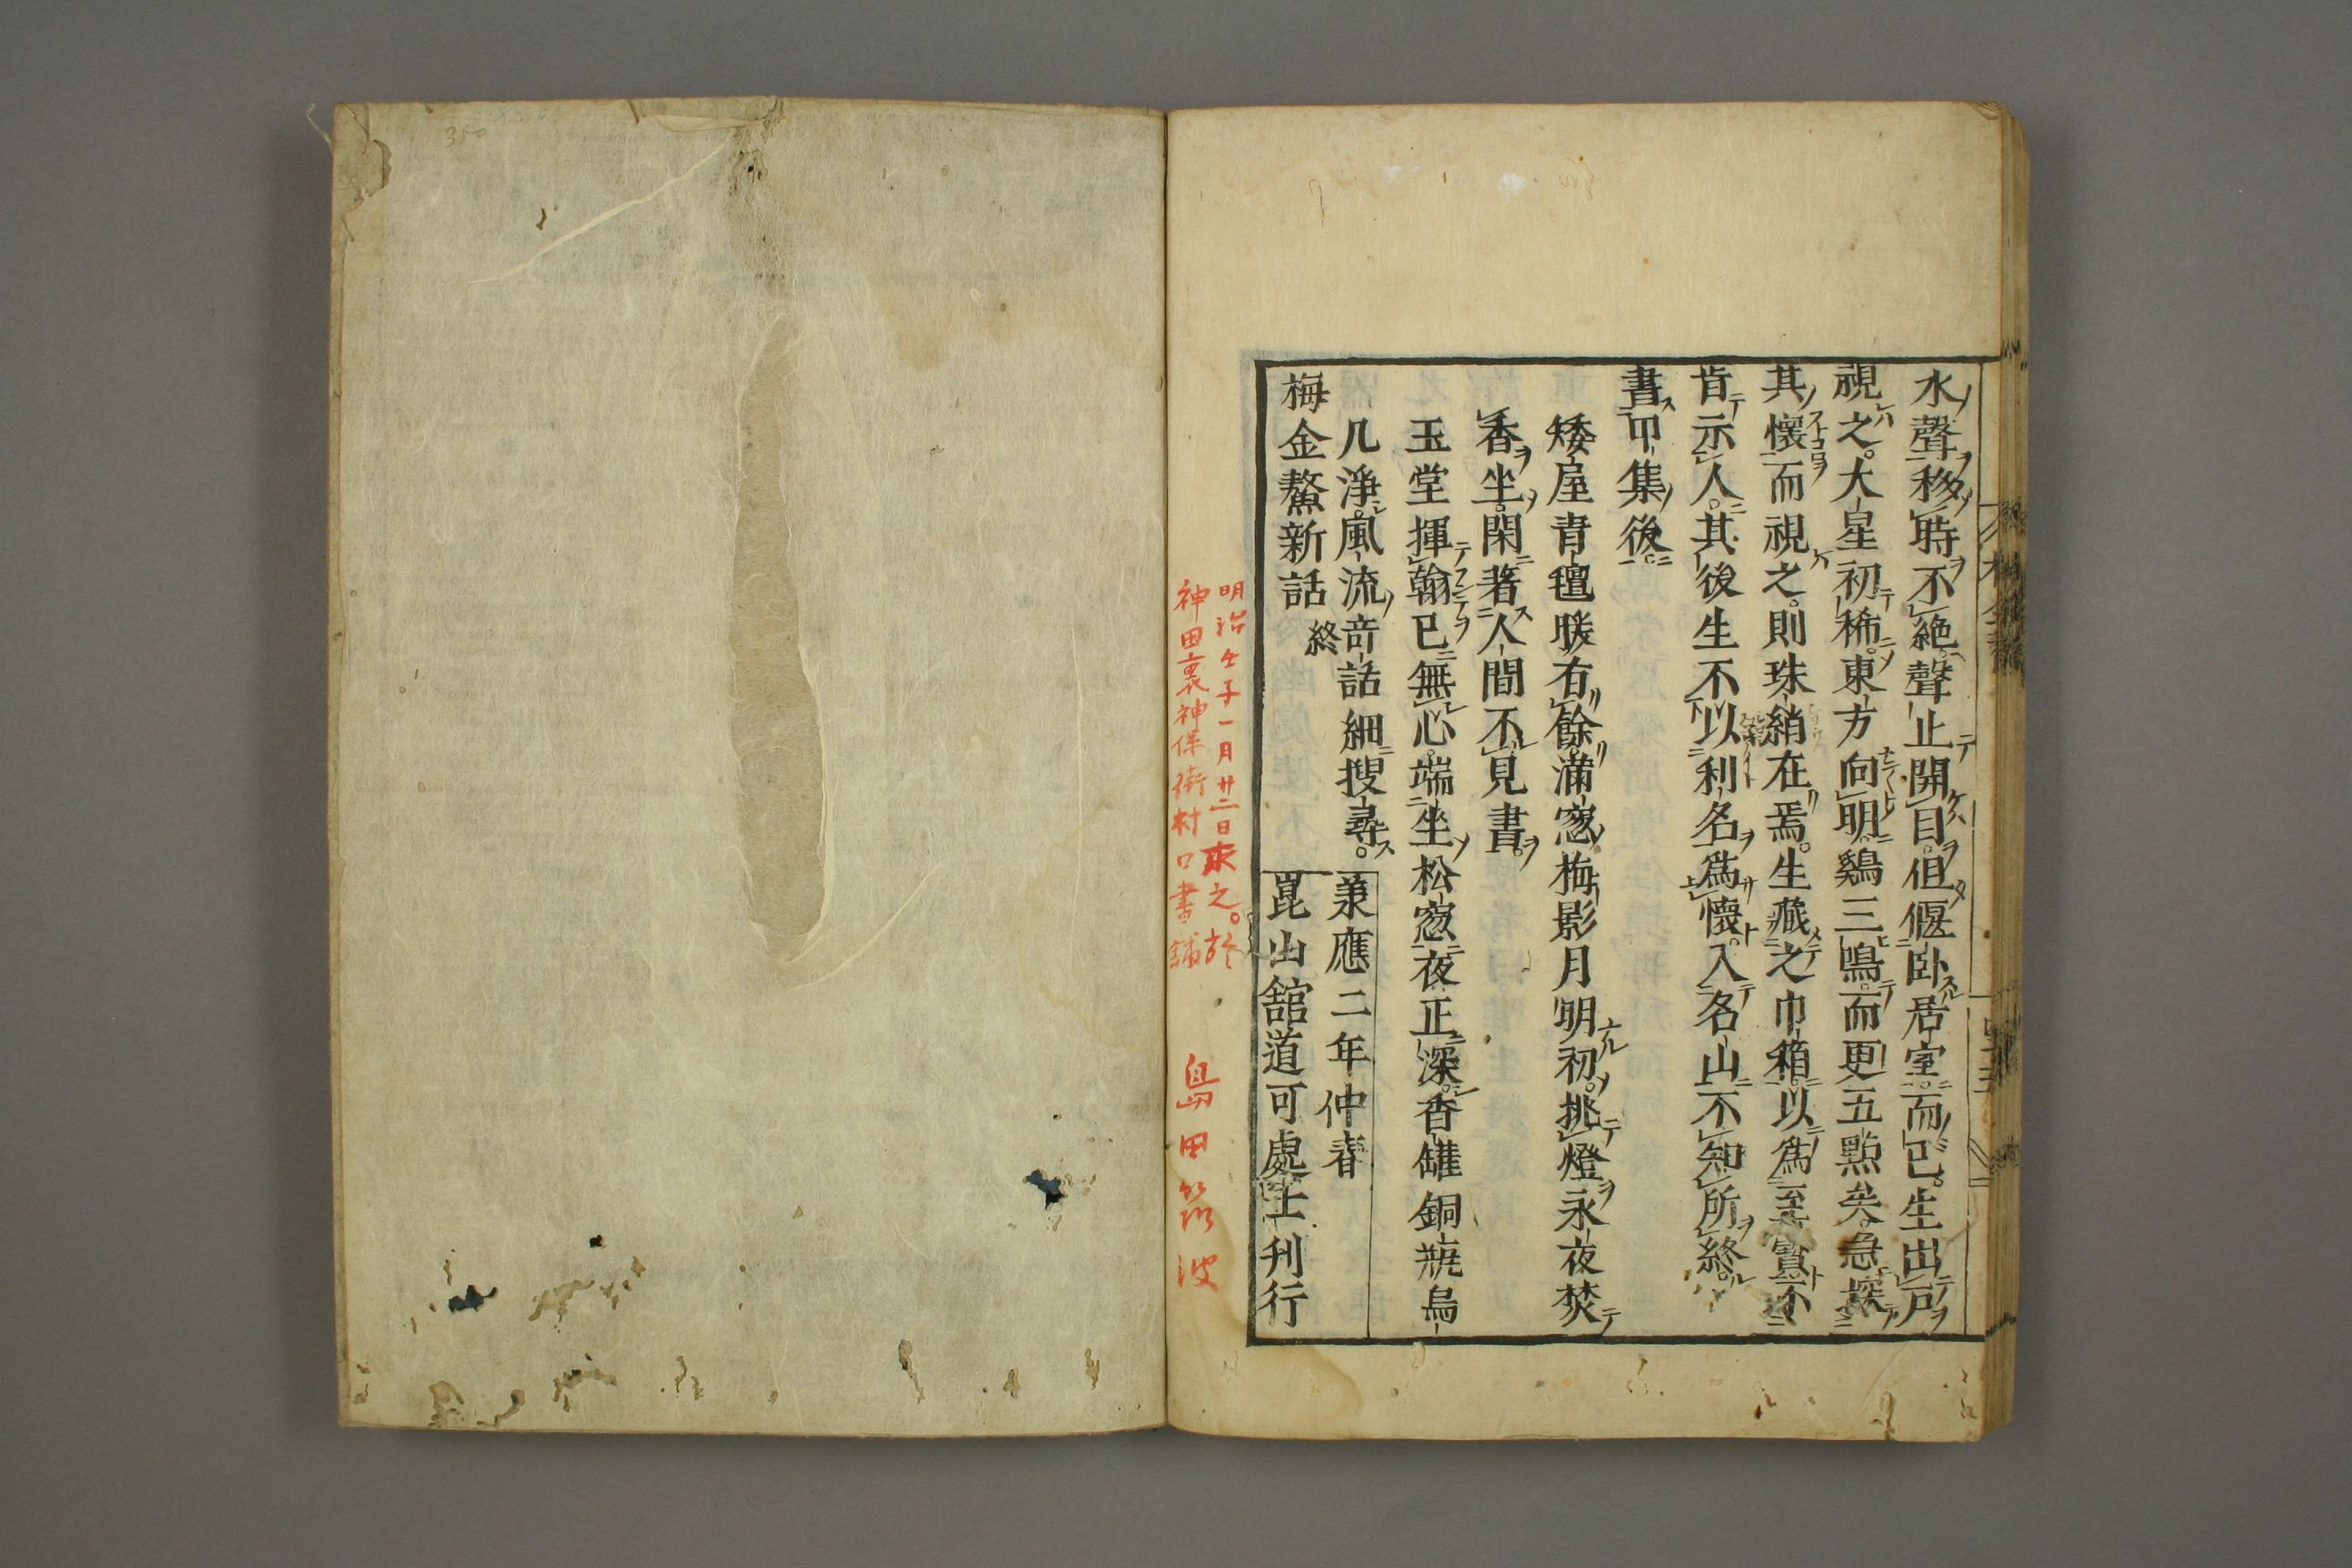 水聲移時不絶聲止開目但偃臥居室而已生出戸
視之大星初稀東方向明鷄三鳴而更五點矣急探
其懷而視之則珠綃在焉生藏之巾箱以爲至寶不
肯示人其後生不以利名爲懷入名山不知所終
書甲集後
矮屋青氊暖有餘滿窓梅影月明初挑燈永夜焚
香坐閑著人間不見書
玉堂揮翰已無心端坐松窓夜正深香罐銅瓶烏
几淨風流竒話細搜尋
梅金鰲新話 終
兼應二年仲春
崑山舘道可處士刊行
明治壬子一月廿二日求之。於
神田裏神保街村口書舗
島田筑波
350